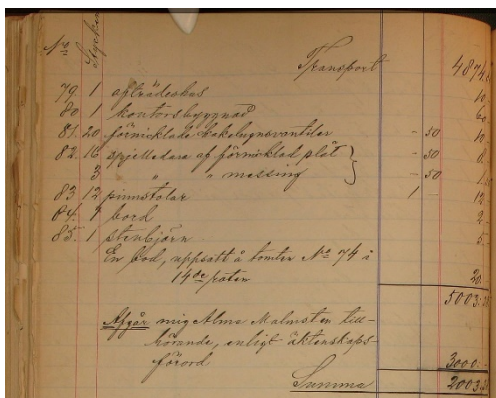 No Stycken
Transport 4874
79. 1 afträdeshus 10.
80. 1 kontorsbyggnad
81. 20 förnicklade kakelugnsventiler - 50 10.
82. 16 spjelledare af förnicklad plåt - 50 8.
3 " " messing - 50 1.50
83 12 pinnstolar 1 - 12.
84. bord 2.
85. 1 stenbjörn 5.
En bod, uppsatt å tomten No 74 å
14de gatan 20.
5003:
Afgår mig Alma Malmsten till-
hörande, enligt äktenskaps-
förord 3000.
Summa 2003: